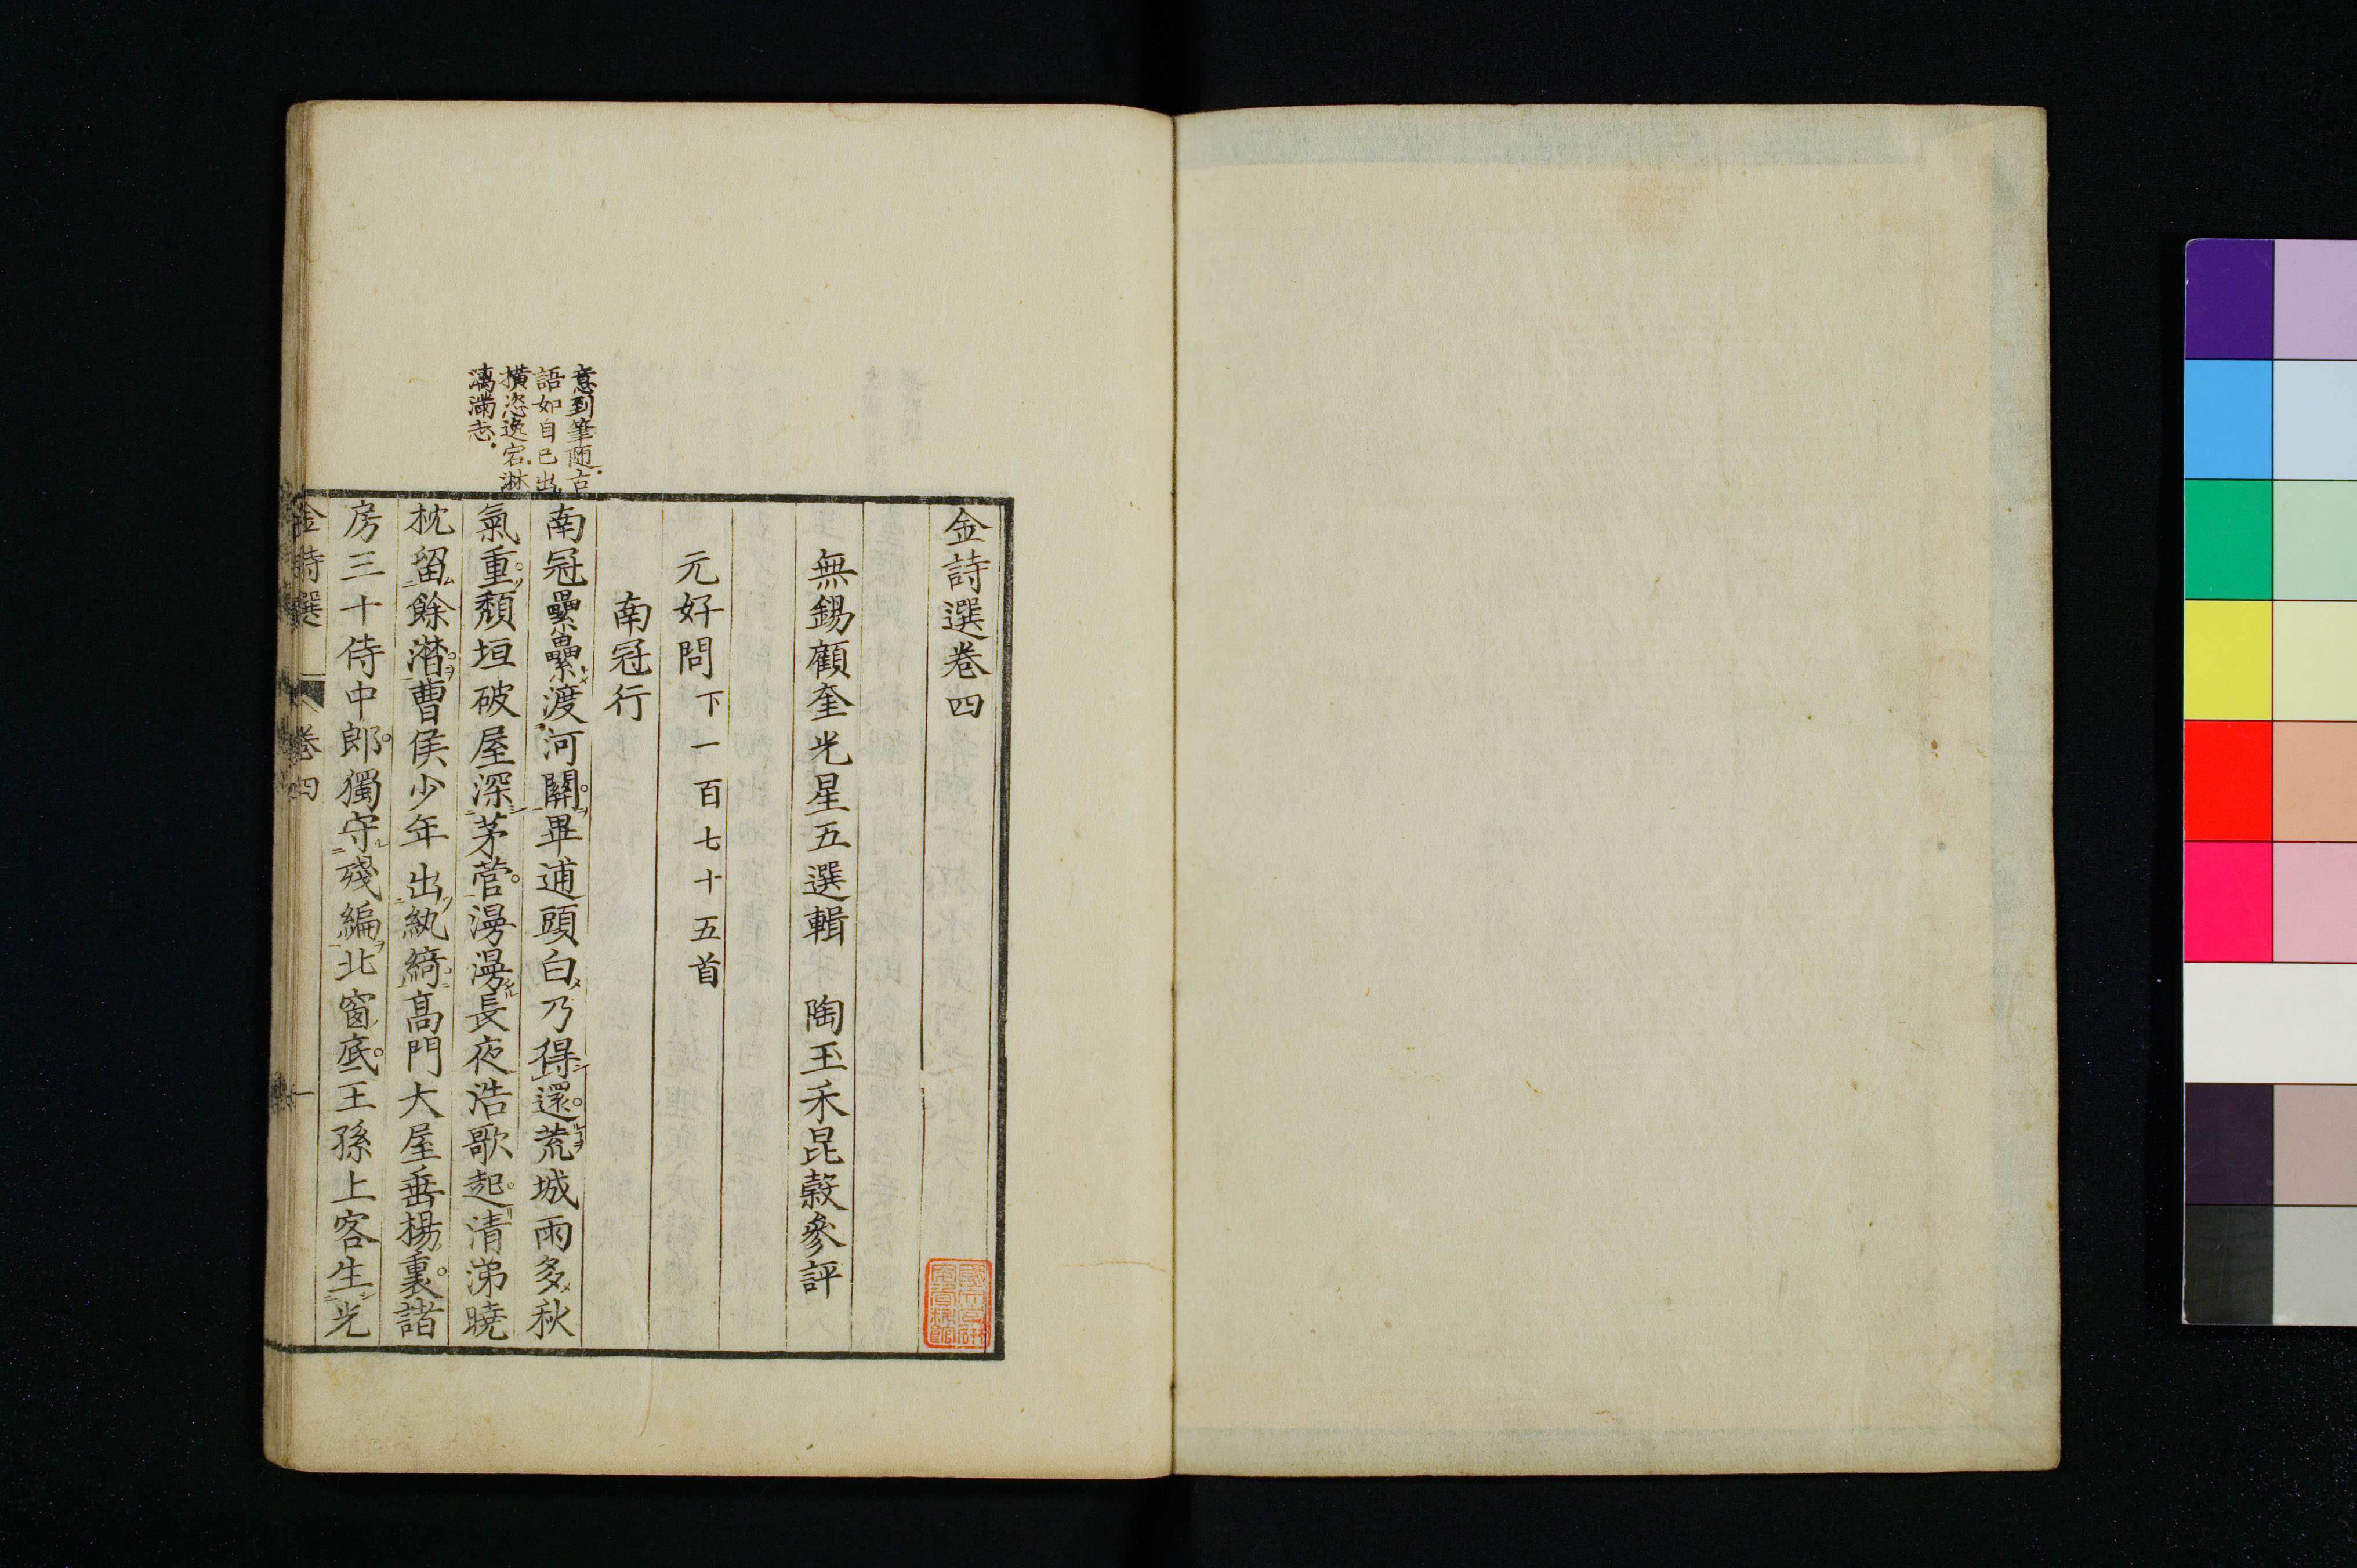 金詩選卷四
無錫顧奎光星五選輯　陶玉禾昆糓參評
元好問下一百七十五首
南冠行
意到筆随古
語如自己出
横恣逸宕淋
漓滿志
南冠纍纍渡河關畢逋頭白乃得還荒城雨多秋
氣重頽垣破屋深茅菅漫漫長夜浩歌起清涕曉
枕留餘潸曹侯少年出紈綺高門大屋垂楊裏諸
房三十侍中郎獨守殘編北窗底王孫上客生光
金詩選　卷四　一